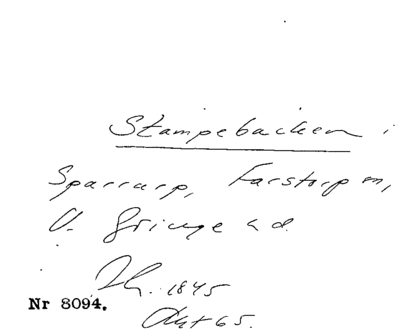 Stampebacken i
Sparrarp, Farstorp sn,
V. Göinge hd.
1845
Nr 8094.
Akt 65.